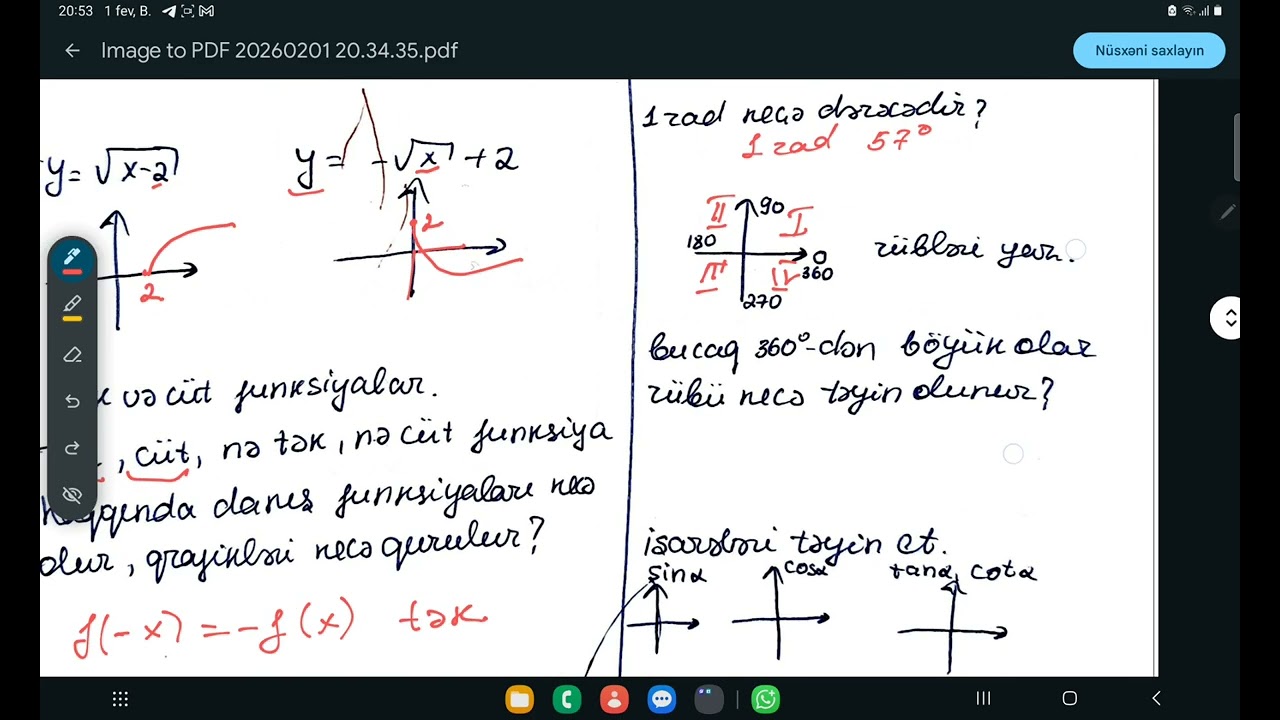 20:53 1 fev, B.
Image to PDF 20260201 20.34.35.pdf
Nüsxəni saxlayın
y= √x-2
2
y= -√x + 2
2
və cüt funksiyalar.
, cüt, nə tək, nə cüt funksiya
danış funksiyaları necə
olur, qrafikləri necə qurulur?
f(-x) = -f(x) tək
1 rad neçə dərəcədir?
1 rad 57°
II 90 I
180 0
III IV 360
270
rübləri yaz.
bucaq 360°-dən böyük olar
rübü necə təyin olunur?
işarələri təyin et.
sinα cosα tanα, cotα